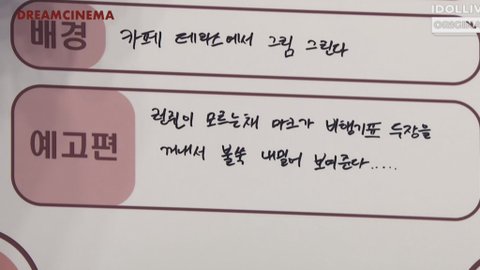 DREAMCINEMA
IDOLLIV
ORIGINA
배경
카페 테라스에서 그림 그린다
예고편
런쥔이 모르는채 마크가 비행기표 두장을
꺼내서 불쑥 내밀어 보여준다.....